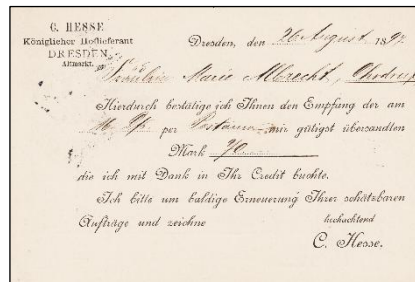 C. HESSE
Königlicher Hoflieferant
DRESDEN
Altmarkt.
Dresden, den 26 August 1897
Fräulein Marie Albrecht, Ohrdruf
Hierdurch bestätige ich Ihnen den Empfang der am
per Postanw. mir gütigst übersandten
Mark
die ich mit Dank in Ihr Credit buchte.
Ich bitte um baldige Erneuerung Ihrer schätzbaren
Aufträge und zeichne
hochachtend
C. Hesse.